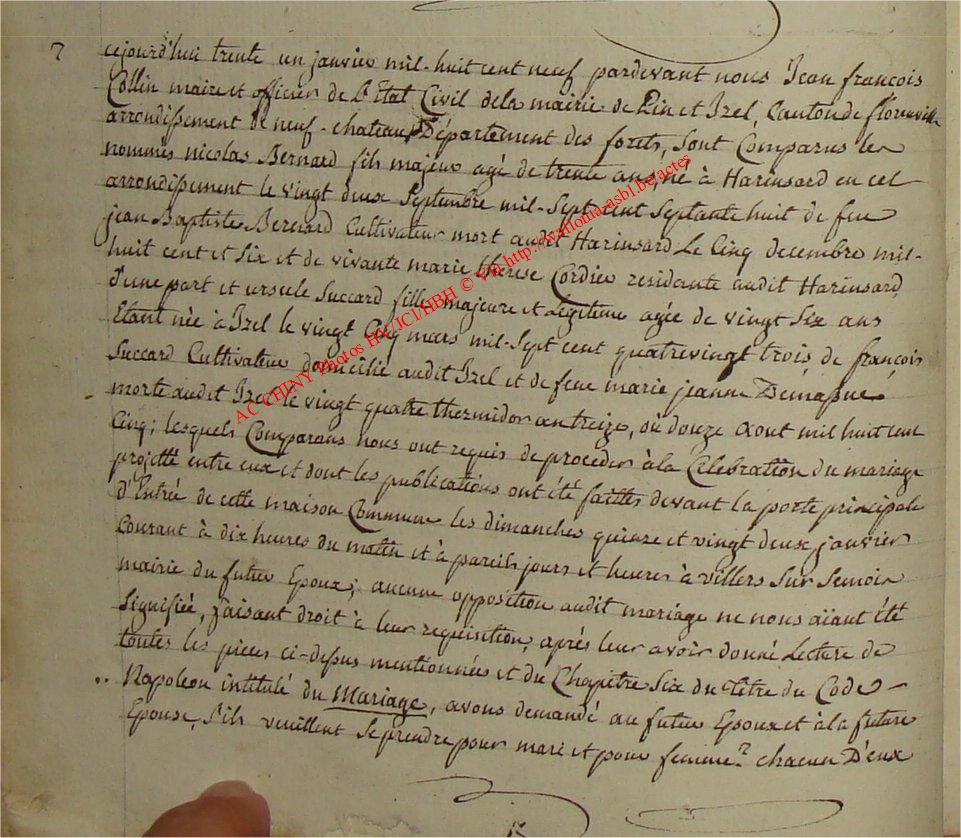 7
cejourd'hui trente un janvier mil-huit cent neuf pardevant nous Jean françois
Collin maire et officier de L'Etat Civil dela mairie de Pin et Izel, Canton de florenville
arrondissement de neuf-chateau Département des forets, sont Comparus les
nommés nicolas Bernard fils majeur agé de trente ans né à Harinsard en cet
arrondissement le vingt deux Septembre mil-Sept cent Septante huit de feu
jean Baptiste Bernard Cultivateur mort audit Harinsard Le Cinq decembre mil-
huit cent et six et de vivante marie therese Cordier residante audit Harinsard,
d'une part et ursule Succard fille majeure et Légitime agée de vingt Six ans
Etant née à Izel le vingt Cinq mars mil-Sept cent quatrevingt trois de françois
Succard Cultivateur domicilié audit Izel et de feue marie jeanne
morte audit Izel le vingt quatre thermidor an treize, où douze aout mil huit cent
Cinq; lesquels Comparans nous ont requis de proceder à la Celebration du mariage
projetté entre eux et dont les publications ont été faittes devant la porte principale
d'Entrée de cette maison Commune les dimanches quinze et vingt deux janvier
Courant à dix heures du matin et à pareils jours et heures à villers Sur Semois
mairie du futur Epoux; aucune opposition audit mariage ne nous aïant été
Signifiée, faisant droit à leur requisition, après leur avoir donné Lecture de
toutes les pieces ci-dessus mentionnées et du Chapitre Six du titre du Code-
Napoleon intitulé du Mariage, avons demandé au futur Epoux et à la future
Epouse, s'ils veuillent se prendre pour mari et pour femme? chacun D'eux
AC CHINY Photos HV JCT/HBH © Via http://wallomaz.asbl.be/actes